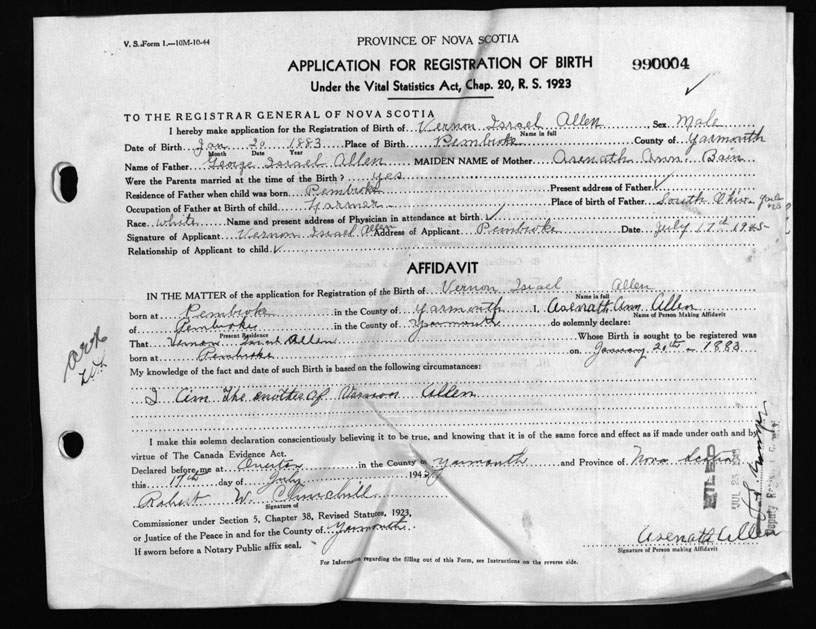 V. S. Form 1.—10M-10-44
PROVINCE OF NOVA SCOTIA
APPLICATION FOR REGISTRATION OF BIRTH 990004
Under the Vital Statistics Act, Chap. 20, R. S. 1923
TO THE REGISTRAR GENERAL OF NOVA SCOTIA
I hereby make application for the Registration of Birth of Vernon Israel Allen, Sex Male
Name in full
Date of Birth Jan 20 1883 Place of Birth Pembroke County of Yarmouth
Month Date Year
Name of Father George Israel Allen MAIDEN NAME of Mother Asenath Ann Bain
Were the Parents married at the time of the Birth? yes
Residence of Father when child was born Pembroke Present address of Father ✓
Occupation of Father at Birth of child Farmer Place of birth of Father South Ohio
Race White Name and present address of Physician in attendance at birth ✓
Signature of Applicant Vernon Israel Allen Address of Applicant Pembroke Date July 17th 1945
Relationship of Applicant to child ✓
AFFIDAVIT
IN THE MATTER of the application for Registration of the Birth of Vernon Israel Allen
Name in full
born at Pembroke in the County of Yarmouth I, Asenath Ann Allen
Name of Person Making Affidavit
of Pembroke in the County of Yarmouth do solemnly declare:
Present Residence
That Vernon Israel Allen Whose Birth is sought to be registered was
born at Pembroke on January 20th - 1883
My knowledge of the fact and date of such Birth is based on the following circumstances:
I am the mother of Vernon Allen
I make this solemn declaration conscientiously believing it to be true, and knowing that it is of the same force and effect as if made under oath and by
virtue of The Canada Evidence Act.
Declared before me at Overton in the County of Yarmouth and Province of Nova Scotia
this 17th day of July 1945
Robert W. Churchill
Signature of
Commissioner under Section 5, Chapter 38, Revised Statutes, 1923,
or Justice of the Peace in and for the County of Yarmouth
If sworn before a Notary Public affix seal.
Asenath Allen
Signature of Person making Affidavit
For Information regarding the filling out of this Form, see Instructions on the reverse side.
FILED